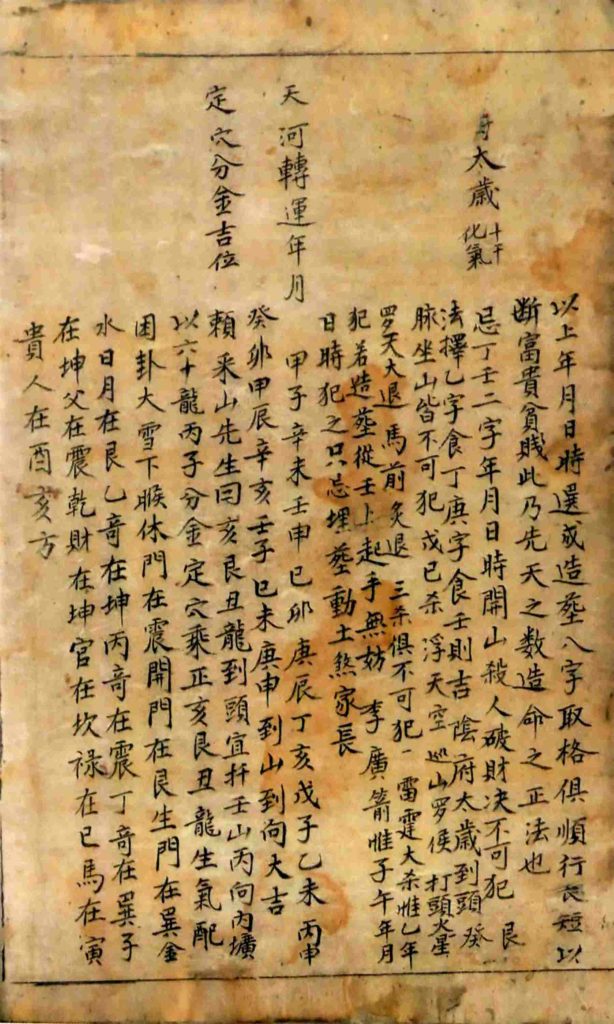 太歲十干化氣
以上年月日時選或造塟八字取格俱順行長短以
断富貴貧賤此乃先天之数造命之正法也
忌丁壬二字年月日時開山殺人破財决不可犯 艮
法擇乙字食丁庚字食壬則吉 陰府太歲到頭 癸
脉坐山皆不可犯戊已杀 浮天空 巡山罗侯 打頭火星
罗天大退 馬前炙退 三杀俱不可犯一 雷霆大杀惟乙年
犯若造塟從壬上起手無妨 李廣箭惟子午年月
日時犯之只忌埋塟動土煞家長
天河轉運年月
甲子辛未壬申巳卯庚辰丁亥戊子乙未丙申
癸卯甲辰辛亥壬子巳未庚申到山到向大吉
定穴分金吉位
賴釆山先生曰亥艮丑龍到頭宜扦壬山丙向内壙
以六十龍丙子分金定穴乘正亥艮丑龍生氣配
困卦大雪下𠉀休門在震開門在艮生門在巽金
水日月在艮乙竒在坤丙竒在震丁竒在巽子
在坤父在震乾財在坤官在坎禄在巳馬在寅
貴人在酉亥方